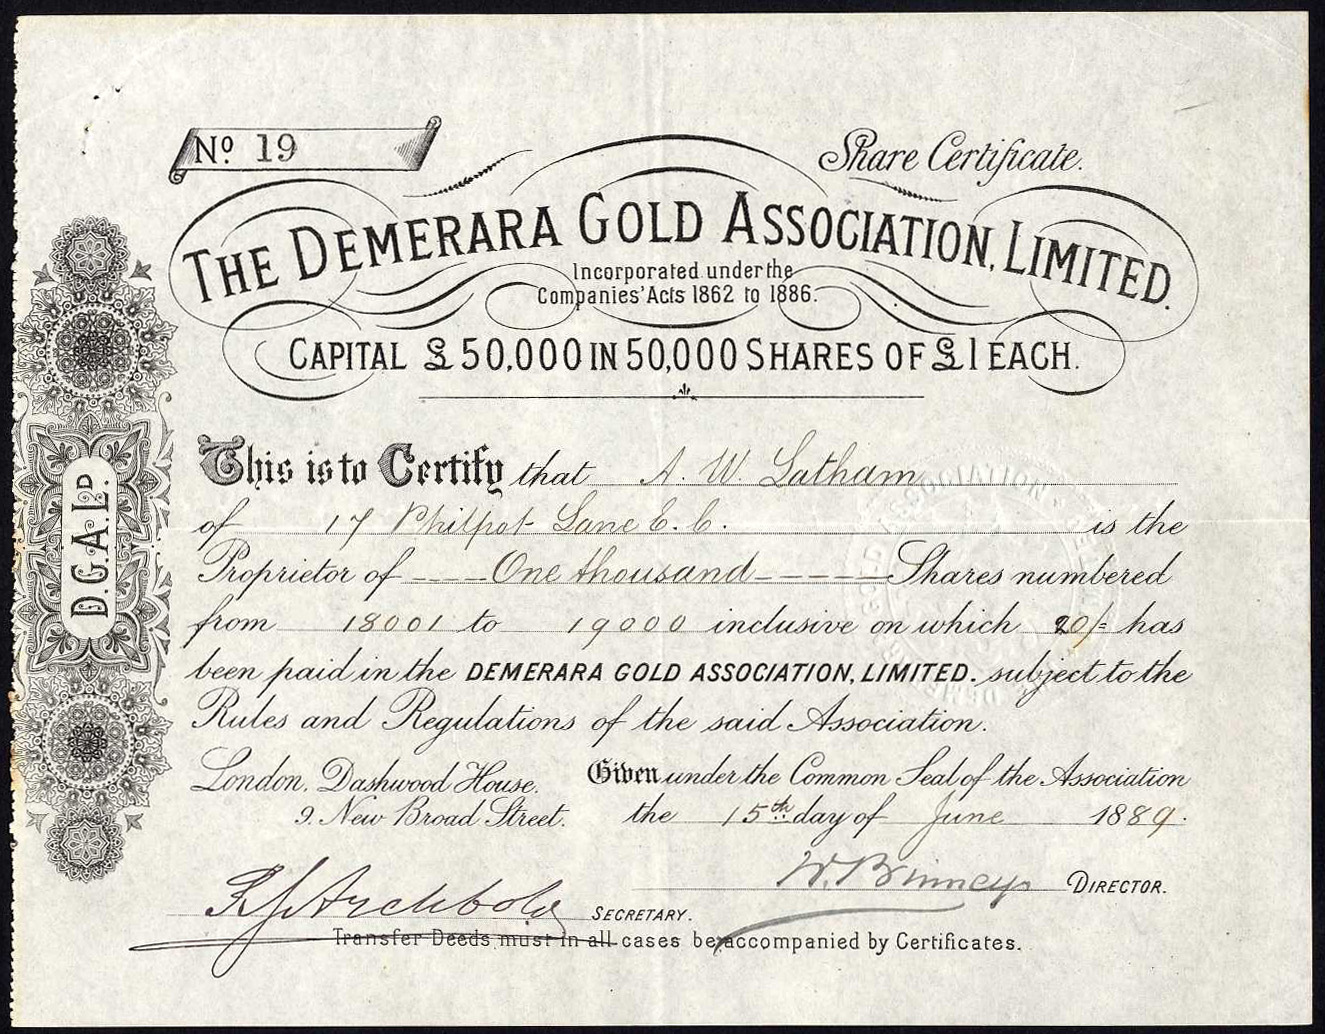 No. 19
Share Certificate.
THE DEMERARA GOLD ASSOCIATION, LIMITED.
Incorporated under the
Companies' Acts 1862 to 1886.
CAPITAL £50,000 IN 50,000 SHARES OF £1 EACH.
D.G.A.LD.
This is to Certify that A. W. Latham
of 17 Philpot Lane E.C. is the
Proprietor of ----One thousand----- Shares numbered
from 18001 to 19000 inclusive on which 20/- has
been paid in the DEMERARA GOLD ASSOCIATION, LIMITED. subject to the
Rules and Regulations of the said Association.
London, Dashwood House.
9. New Broad Street.
Given under the Common Seal of the Association
the 15th day of June 1889.
W. Binneys DIRECTOR.
Archbold SECRETARY.
Transfer Deeds must in all cases be accompanied by Certificates.